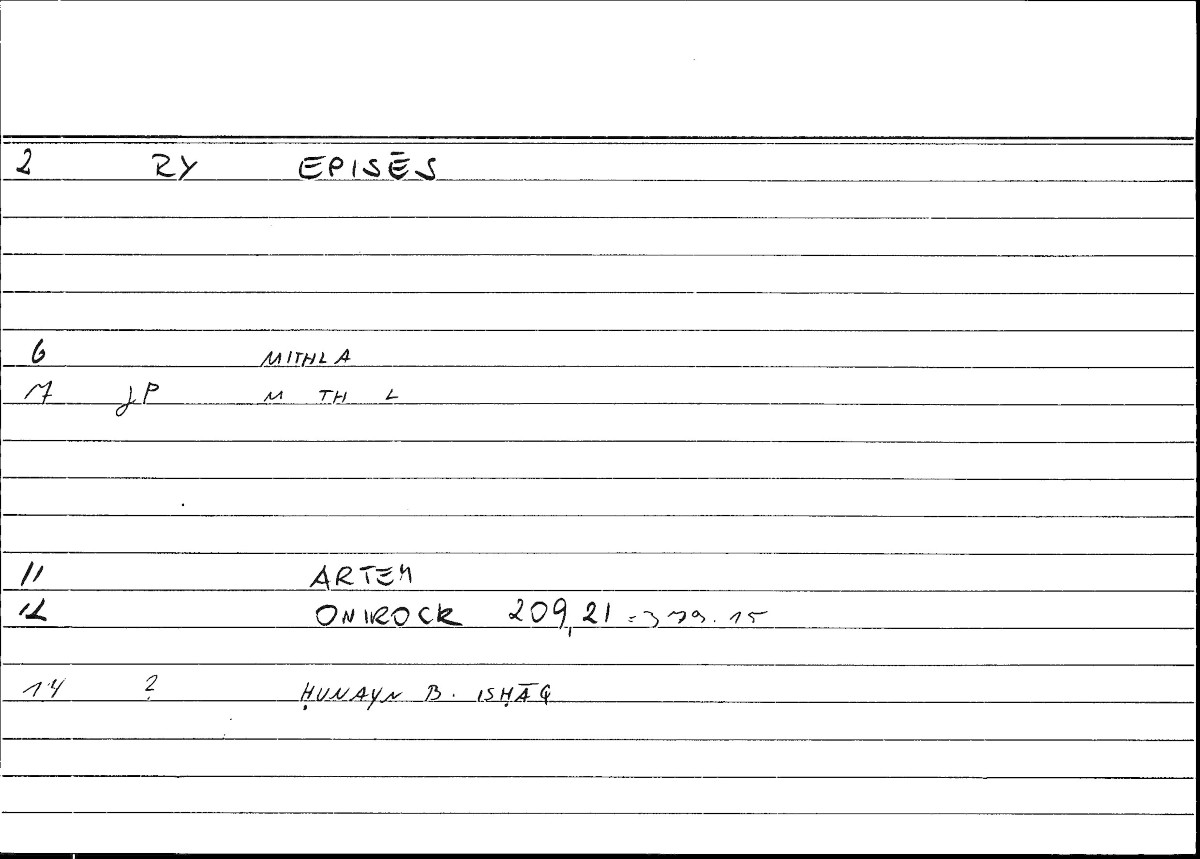 2 RY EPISĒS
6 MITHLA
7 JP M TH L
11 ARTEM
12 ONIROCR 209,21 = 379.15
14 ? ḤUNAYN B. ISḤĀQ